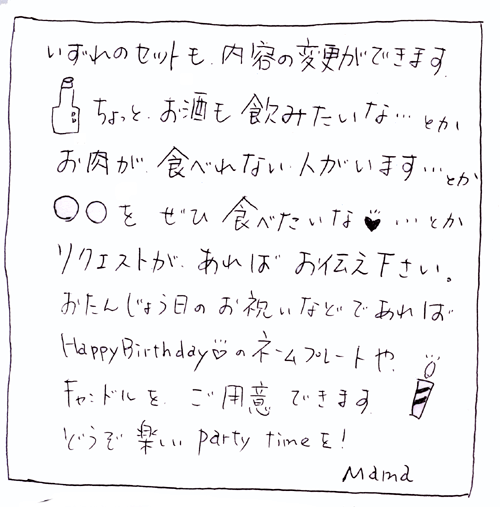 いずれのセットも、内容の変更ができます。
ちょっと、お酒も飲みたいな…とか
お肉が、食べれない人がいます…とか
○○を ぜひ 食べたいな♥…とか
リクエストが、あれば お伝え下さい。
おたんじょう日のお祝いなどであれば
HappyBirthday♡のネームプレートや、
キャンドルを、ご用意できます。
どうぞ楽しい party timeを!
Mama